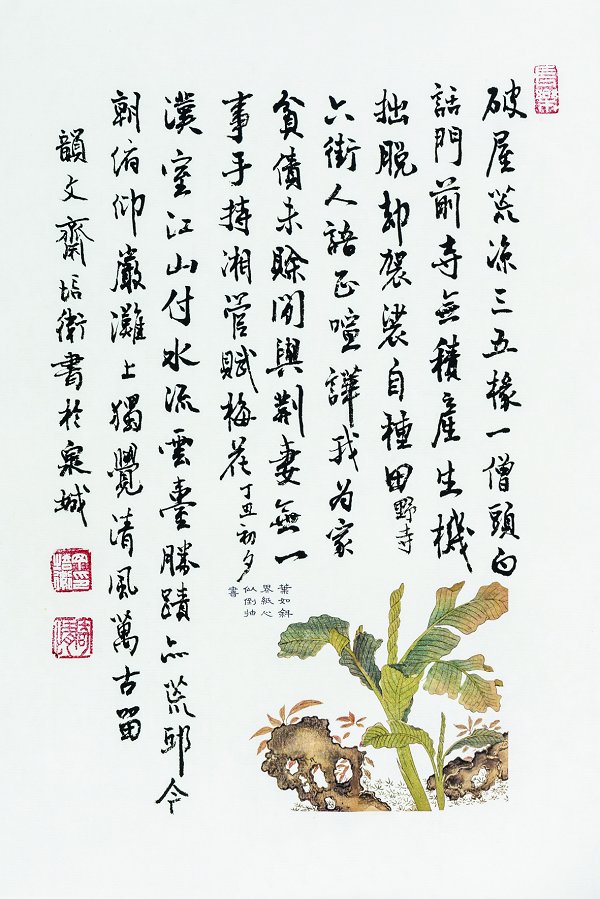 破屋荒涼三五椽一僧頭白
話門前寺無積產生機
拙脫却袈裟自種田野寺
六街人語正喧譁我為家
貧債未賒閒與荊妻無一
事手持湘管賦梅花丁丑初夕
漢室江山付水流雲臺勝蹟亦荒邱今
朝俯仰嚴灘上獨覺清風萬古留
韻文齋培衛書於泉城
葉如斜
界紙心
似倒抽
書